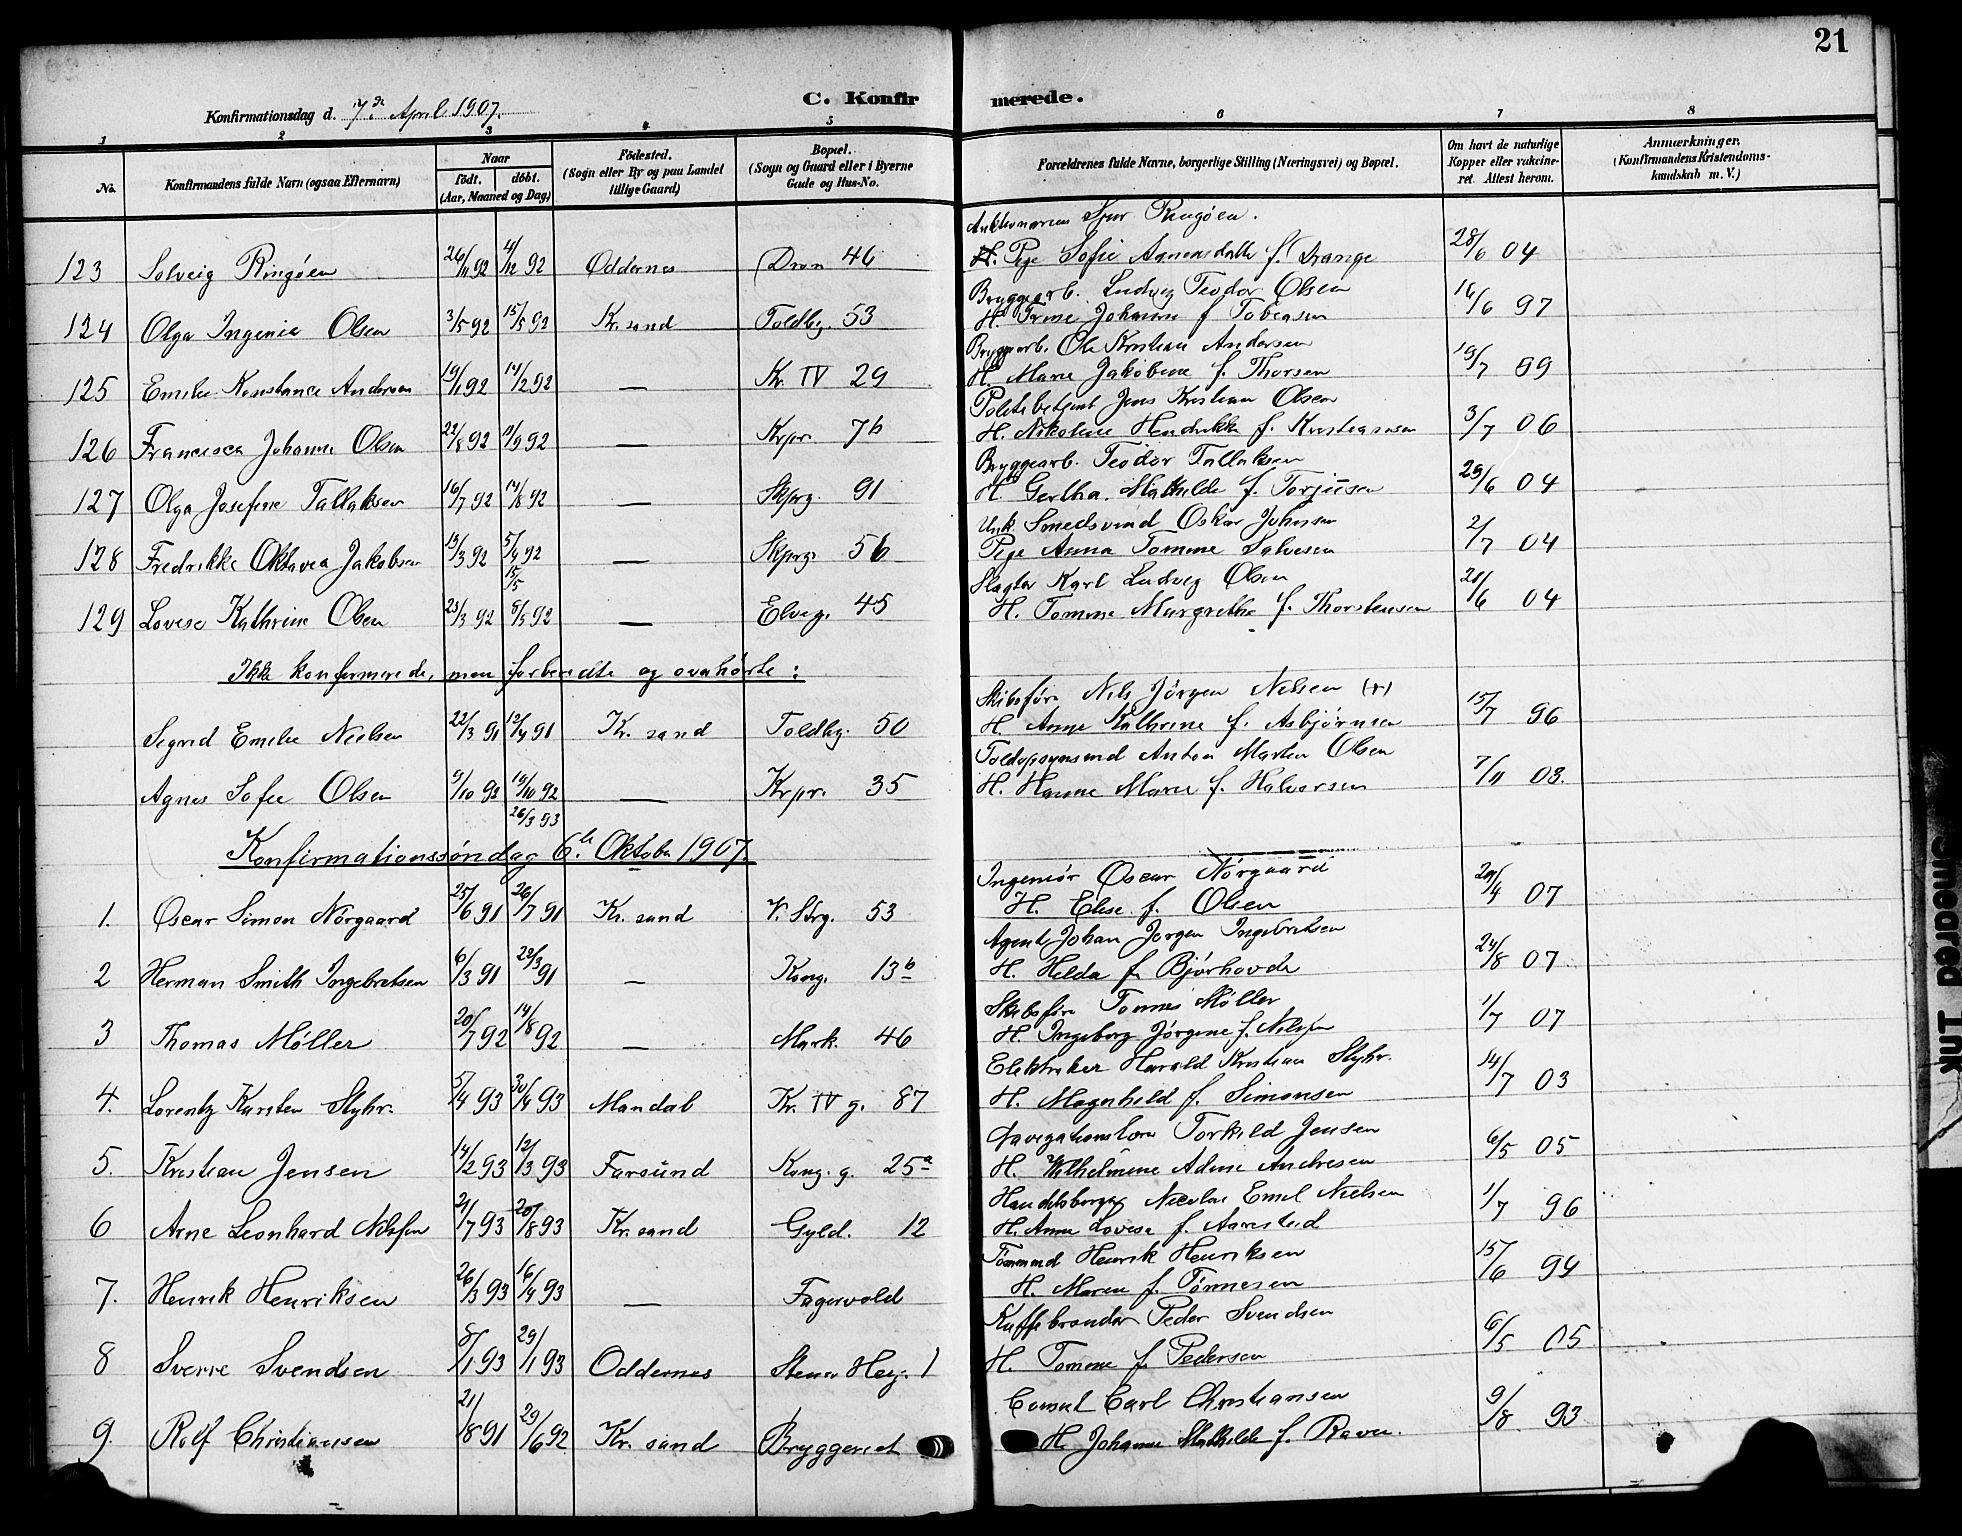 21
Konfirmationsdag d. 7de April 1907.
C. Konfirmerede.
1 2 3 4 5 6 7 8
No.
Konfirmandens fulde Navn (ogsaa Efternavn)
Naar
födt. döbt.
(Aar, Maaned og Dag)
Födested.
(Sogn eller By og paa Landet
tillige Gaard)
Bopæl.
(Sogn og Gaard eller i Byerne
Gade og Hus-No.
Forældrenes fulde Navne, borgerlige Stilling (Næringsvei) og Bopæl.
Om havt de naturlige
Kopper eller vakcine-
ret. Attest herom.
Anmærkninger,
(Konfirmandens Kristendoms-
kundskab m. V.)
123 Solveig Ringöen 26/11 92 4/12 92 Oddernes Dron 46 Ringöen.
H. Pige Sofie f. Drange 28/6 04
124 Olga Ingenie Olsen 3/5 92 15/5 92 Kr.sand Toldbg. 53 Bryggearb. Ludvig Teodor Olsen
H. Johanne f Tobiasen 16/6 97
125 Emilie Konstance Andersen 19/1 92 14/2 92 — Kr. IV 29 Bryggearb. Ole Kristian Andersen
H. Marie Jakobine f. Thorsen 19/7 99
126 Francisca Johanne Olsen 22/8 92 11/9 92 — Krpr. 7b Politibetjent Jens Kristian Olsen
H. Nikoline Hendrikke f. Kristiansen 3/7 06
127 Olga Josefine Tallaksen 16/7 92 14/8 92 — Skprg. 91 Bryggearb. Teodor Tallaksen
H. Gertha Mathilde f. Torjusen 29/6 04
128 Fredrikke Oktavia Jakobsen 13/3 92 5/4 92 — Skprg. 56 Unk. Smedsvend Oskar Johnsen
Pige Anna Tomine Salvesen 2/7 04
15/5
129 Lovise Kathrine Olsen 23/3 92 5/5 92 — Elveg. 45 Slagter Karl Ludvig Olsen
H. Tomine Margrethe f. Thorstensen 28/6 04
Ikke konfirmerede, men forberedte og overhørte:
Sigrid Emilie Nielsen 22/3 91 12/4 91 Kr. sand Toldbg. 50 Skibsfører Nils Jörgen Nielsen (+)
H. Anne Kathrine f. Asbjørnsen 15/7 96
Agnes Sofie Olsen 9/10 92 19/10 92 — Krpr. 35 Toldopsynsmd Anton Martin Olsen
H. Hanne Marie f. Halvorsen 7/11 03.
26/3 93
Konfirmationssøndag 6te Oktober 1907.
1. Oscar Simon Nörgaard 25/6 91 26/7 91 Kr. sand V. Strg. 53 Ingeniör Oscar Nörgaard
H. Elise f. Olsen 29/4 07
2 Herman Smith Ingebretsen 6/3 91 28/3 91 — Kong. 13b Agent Johan Jorgen Ingebretsen
H. Hilda f. Bjørhovde 24/8 07
3 Thomas Møller 20/7 92 14/8 92 — Mark. 46 Skibsfører Tønnes Møller
H. Ingeborg Jørgine f. Nilsen 1/7 07
4. Lorentz Karsten Styhr. 5/4 93 30/4 93 Mandal Kr. IV g. 87 Elektriker Harald Kristian Styhr.
H. Magnhild f. Simonsen 14/7 03
5. Kristian Jensen 14/2 93 12/3 93 Farsund Kong. g. 25a Navigationslærer Torkild Jensen
H. Wilhelmine Adine Andresen 6/5 05
6 Arne Leonhard Nilsen 21/7 93 20/8 93 Kr. sand Gyld. 12 Handelsborger Nicolai Emil Nielsen
H. Anna Lovise f. Aarestad 1/7 96
7. Henrik Henriksen 26/3 93 16/4 93 — Fagervold Tømmermd Henrik Henriksen
H. Maren f. Tönnesen 15/6 94
8 Sverre Svendsen 8/1 93 29/1 93 Oddernes 1 Kaffebrander Peder Svendsen
H. Tomine f. Pedersen 6/5 05
9. Rolf Christiansen 21/8 91 29/6 92 Kr. sand Bryggeriet Consul Carl Christiansen
H. Johanne Mathilde f. Raven. 9/8 93
Smeared Ink